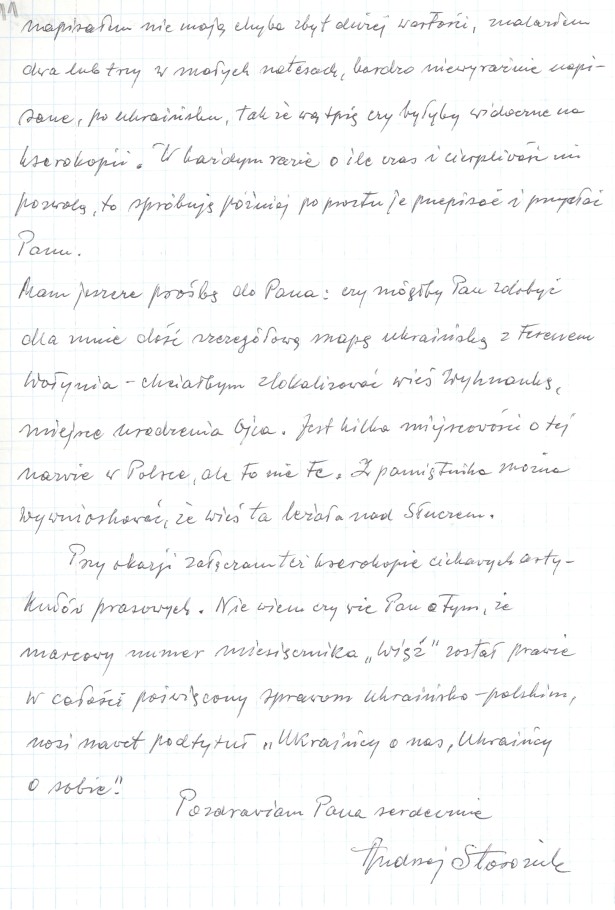 11
napisałem nie mają chyba zbyt dużej wartości, znalazłem
dwa lub trzy w małych notesach, bardzo niewyraźnie napi-
sane, po ukraińsku, tak że wątpię czy byłyby widoczne na
kserokopii. W każdym razie o ile czas i cierpliwość mi
pozwolą, to spróbuję później po prostu je przepisać i przysłać
Panu.
Mam jeszcze prośbę do Pana: czy mógłby Pan zdobyć
dla mnie dość szczegółową mapę ukraińską z terenem
Wołynia - chciałbym zlokalizować wieś Wyhnankę,
miejsce urodzenia Ojca. Jest kilka miejscowości o tej
nazwie w Polsce, ale to nie te. Z pamiętnika można
wywnioskować, że wieś ta leżała nad Słuczem.
Przy okazji załączam też kserokopie ciekawych arty-
kułów prasowych. Nie wiem czy wie Pan o tym, że
marcowy numer miesięcznika „Więź” został prawie
w całości poświęcony sprawom ukraińsko-polskim,
nosi nawet podtytuł „Ukraińcy o nas, Ukraińcy
o sobie”.
Pozdrawiam Pana serdecznie
Andrzej